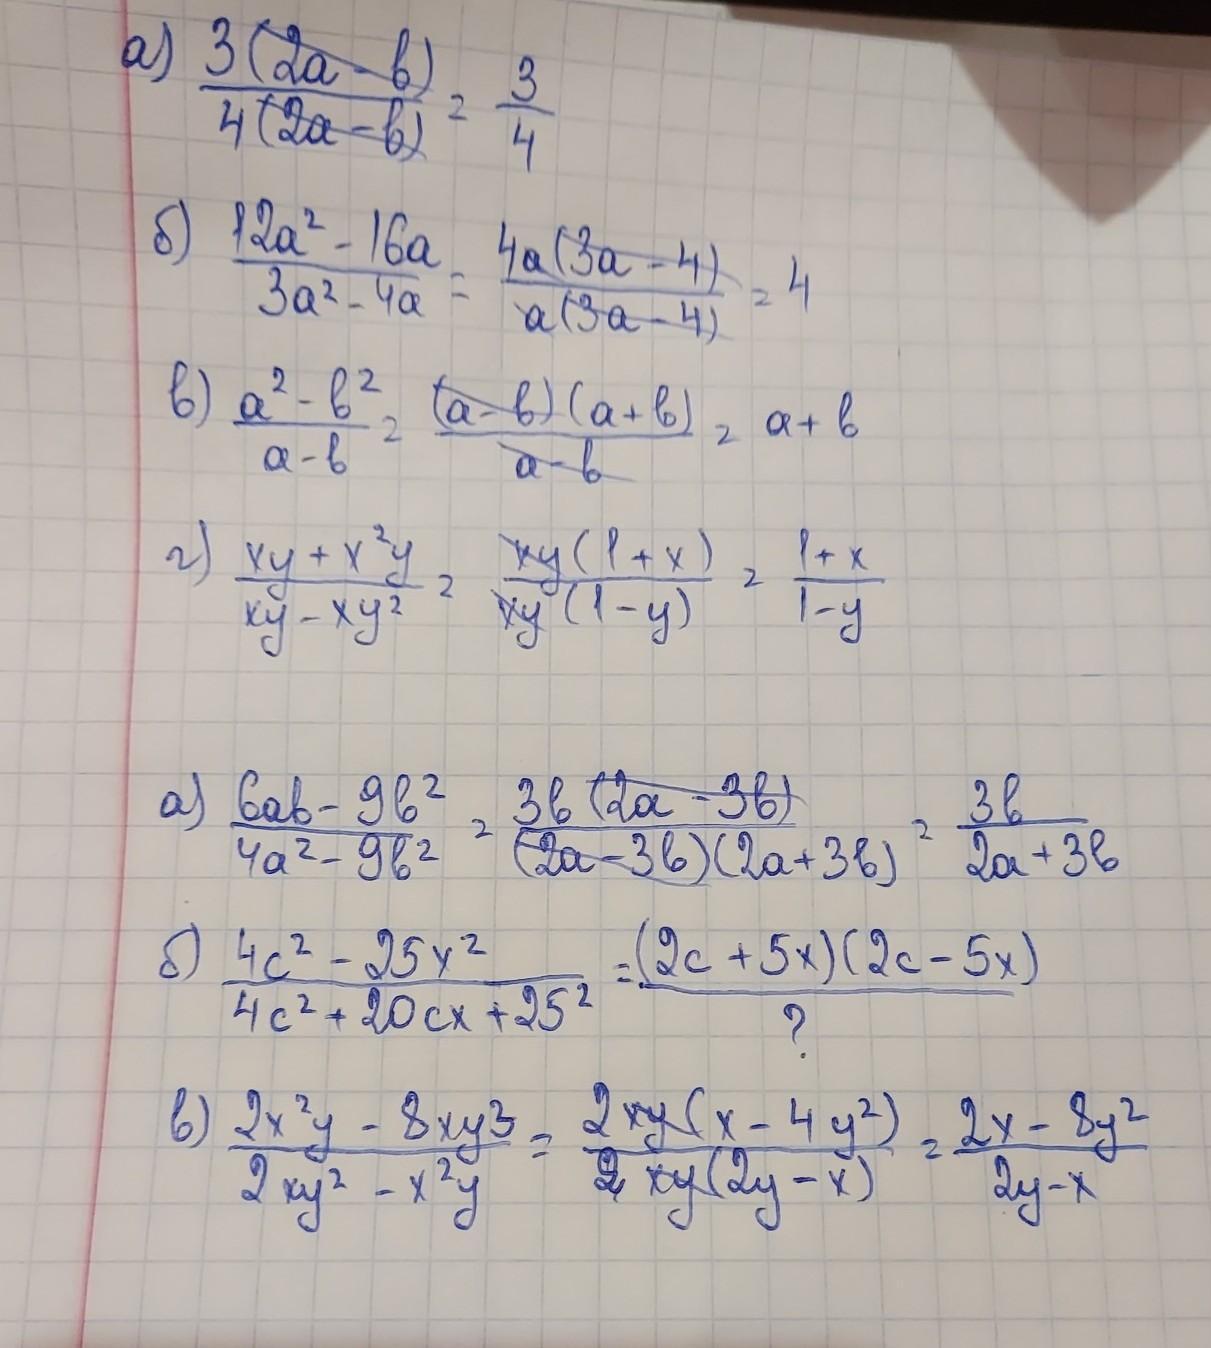 а) 3(2a - b) / 4(2a - b) = 3 / 4
б) 12a² - 16a / 3a² - 4a = 4a(3a - 4) / a(3a - 4) = 4
в) a² - b² / a - b = (a - b)(a + b) / a - b = a + b
г) xy + x²y / xy - xy² = xy(1 + x) / xy(1 - y) = 1 + x / 1 - y
а) 6ab - 9b² / 4a² - 9b² = 3b(2a - 3b) / (2a - 3b)(2a + 3b) = 3b / 2a + 3b
б) 4c² - 25x² / 4c² + 20cx + 25² = (2c + 5x)(2c - 5x) / ?
в) 2x²y - 8xy3 / 2xy² - x²y = 2xy(x - 4y²) / xy(2y - x) = 2x - 8y² / 2y - x